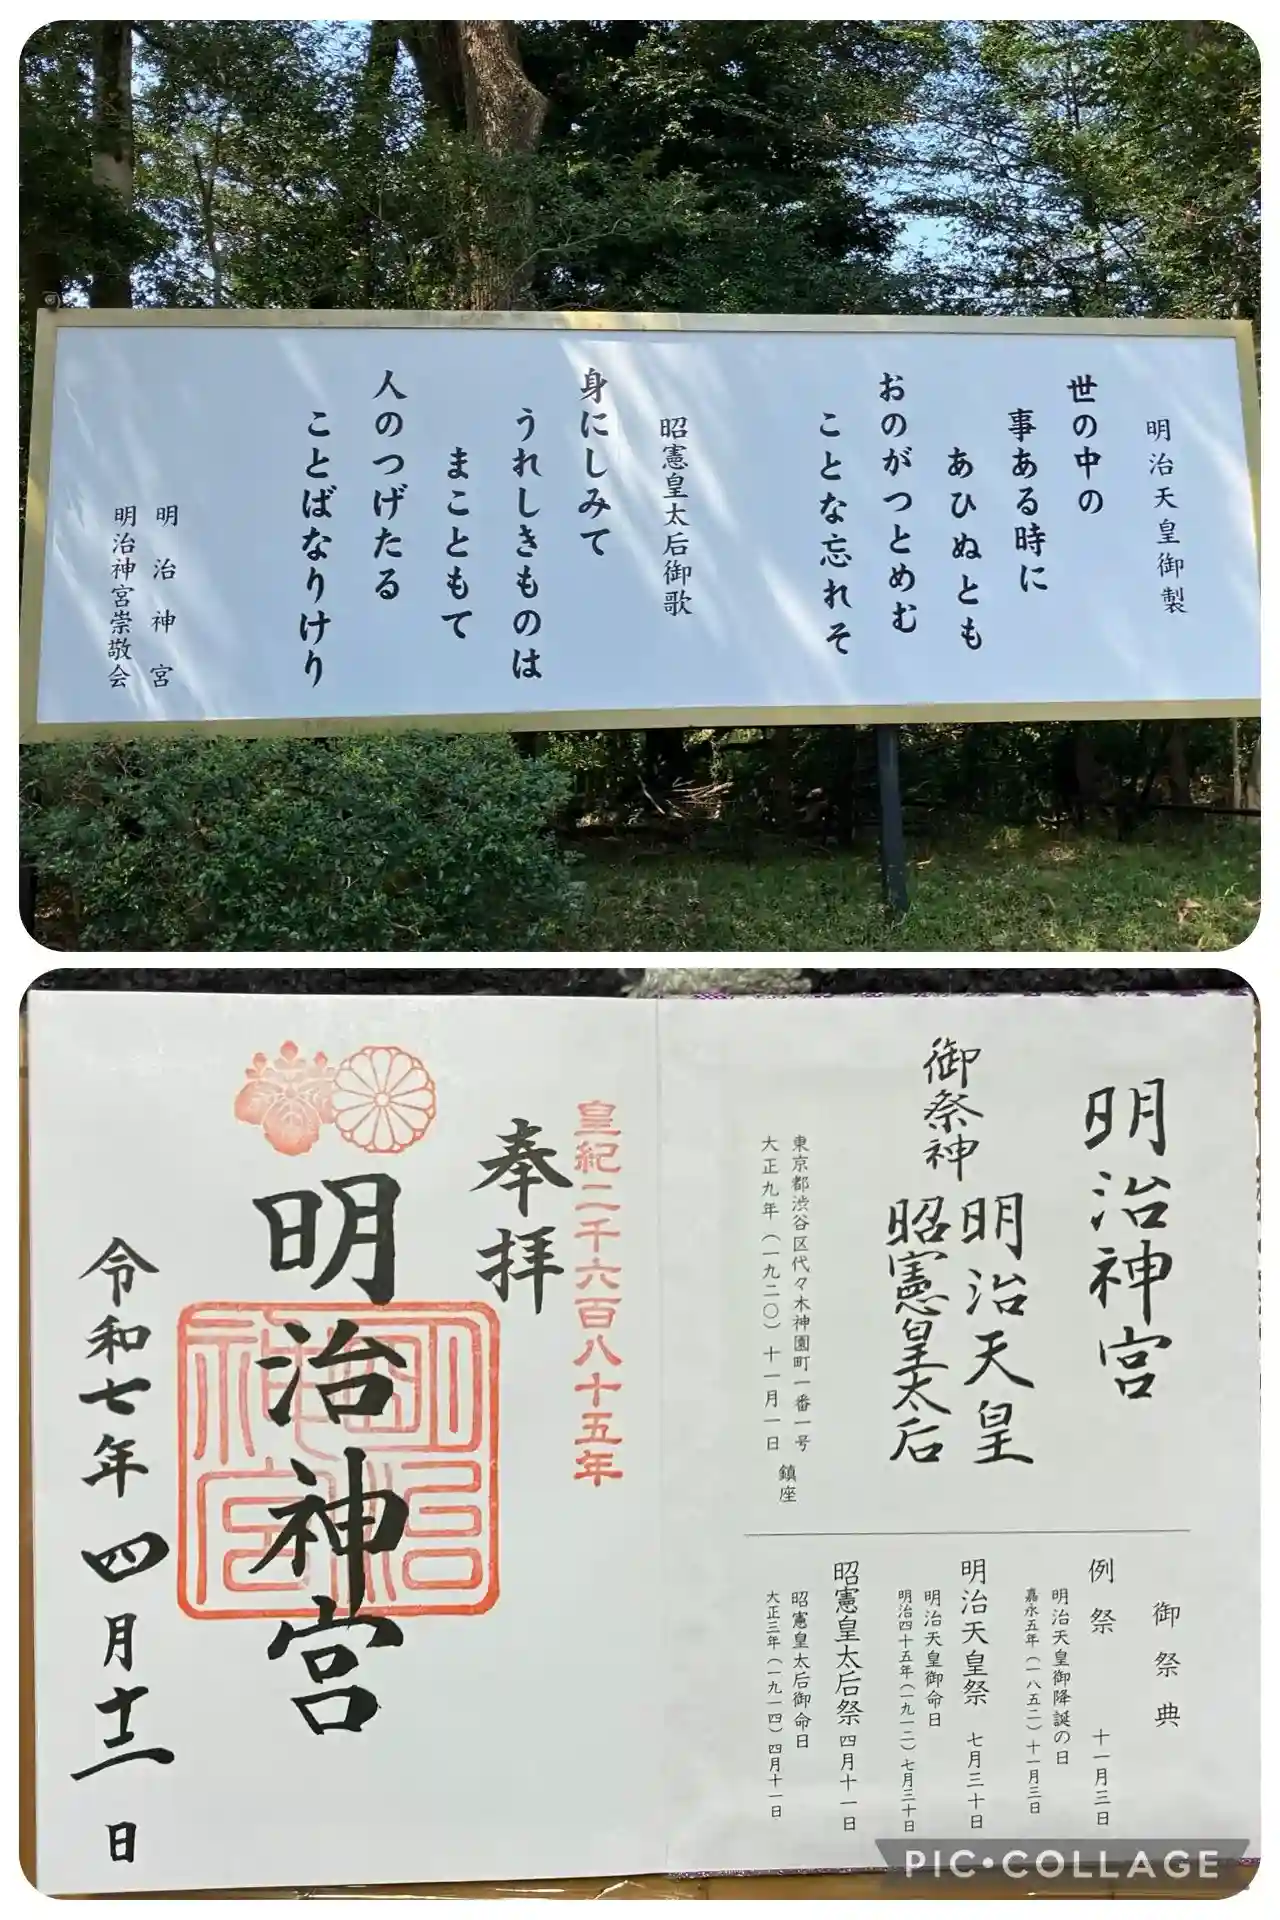 明治天皇御製
世の中の
事ある時に
あひぬとも
おのがつとめむ
ことな忘れそ
昭憲皇太后御歌
身にしみて
うれしきものは
まこともて
人のつげたる
ことばなりけり
明治神宮
明治神宮崇敬会
明治神宮
御祭神
明治天皇
昭憲皇太后
東京都渋谷区代々木神園町一番一号
大正九年(一九二〇)十一月一日
鎮座
御祭典
例祭 十一月三日
明治天皇御降誕の日
嘉永五年(一八五二)十一月三日
明治天皇祭 七月三十日
明治天皇御命日
明治四十五年(一九一二)七月三十日
昭憲皇太后祭 四月十一日
昭憲皇太后御命日
大正三年(一九一四)四月十一日
皇紀二千六百八十五年
奉拝
明治神宮
明治神宮
令和七年四月十二日
PIC•COLLAGE